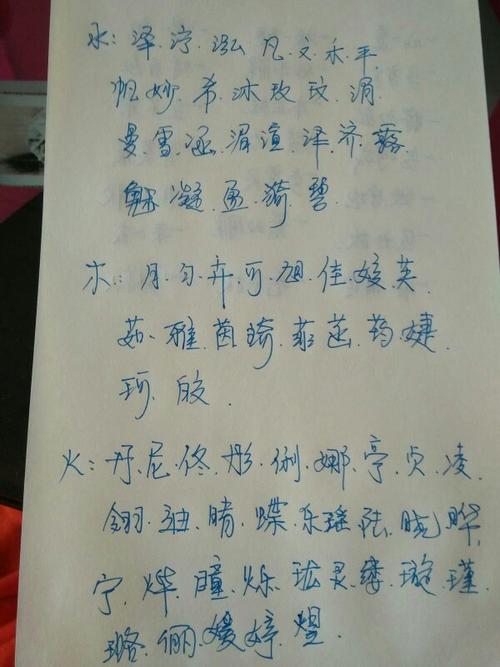 水：泽.泞.泓.凡.文.禾.平.
帆.妙.希.冰.玫.玟.湄.
曼.雪.涵.湄.渲.泽.济.露.
魅.凝.孟.漪.碧.
木：月.匀.卉.可.旭.佳.媛.英
茹.雅.茵.琦.菲.菡.药.婕.
珂.皎.
火：丹.尼.佟.彤.俐.娜.亭.贞.凌
翎.迪.晴.蝶.乐.瑶.陆.晓.晔.
宁.烨.瞳.烁.珑.灵.缕.璇.瑾.
璐.俪.媛.婷.煜.